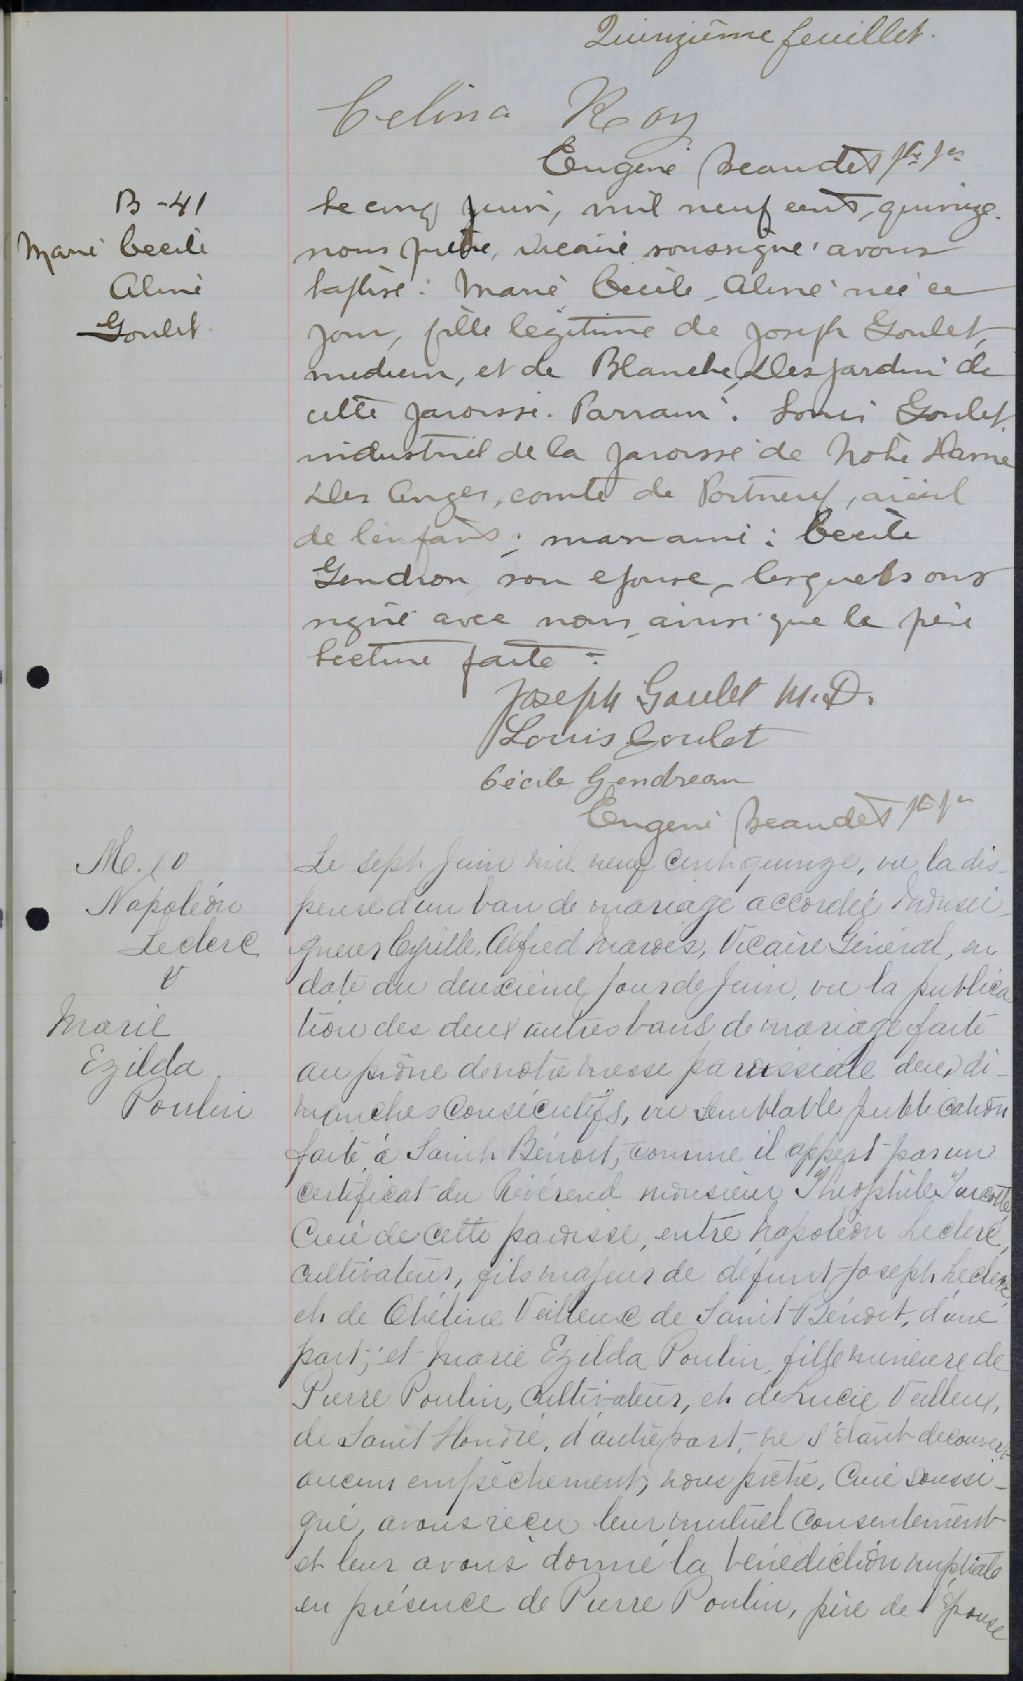 Quinzième feuillet.
Celina Roy
Eugène Beaudet ptre
B-41
Marie Cecile
Aline
Goulet
Le cinq juin, mil neuf cent, quinze.
nous prêtre, vicaire soussigné avons
baptisé: Marie, Cécile, Aline née ce
jour, fille légitime de Joseph Goulet,
médecin, et de Blanche Desjardins de
cette paroisse. Parrain: Louis Goulet
industriel de la paroisse de Notre Dame
Des Anges, comté de Portneuf, aïeul
de l'enfant; marraine: Cecile
Gendron, son épouse, lesquels ont
signé avec nous, ainsi que le père
Lecture faite =
Joseph Goulet M.D.
Louis Goulet
Cécile Gendreau
Eugène Beaudet ptre
M. 10
Napoléon
Leclerc
&
Marie
Ezilda
Poulin
Le sept Juin mil neuf cent quinze, vu la dis-
pense d'un ban de mariage accordée Monsei-
gneur Cyrille Alfred Marois, Vicaire Général, en
date du deuxième jour de Juin, vu la publica
tion des deux autres bans de mariage faite
au prône de notre messe paroissiale deux di-
manches consécutifs, vu semblable publication
faite à Saint Bénoit, comme il appert par un
certificat du Révérend monsieur Théophile Turcotte
Curé de cette paroisse, entre Napoléon Leclerc,
cultivateur, fils majeur de défunt Joseph Leclerc,
et de Obéline Veilleux de Saint Bénoit, d'une
part; et Marie Ezilda Poulin, fille mineure de
Pierre Poulin, cultivateur, et de Lucie Veilleux,
de Saint Honoré, d'autre part, ne s'étant découvert
aucun empêchement, nous prêtre, Curé soussi-
gné, avons reçu leur mutuel consentement
et leur avons donné la bénédiction nuptiale
en présence de Pierre Poulin, père de l'épouse